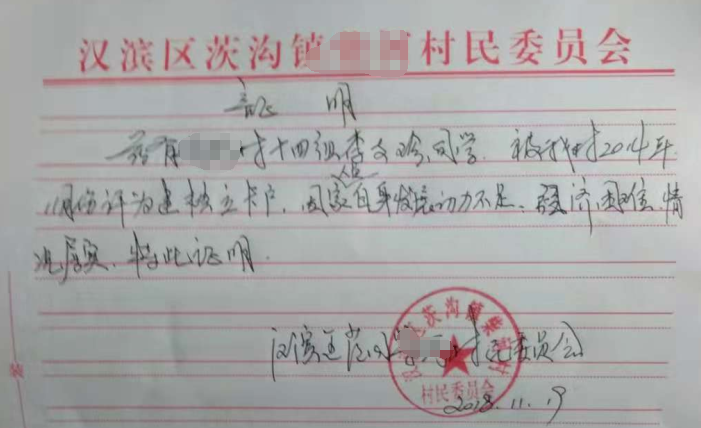 汉滨区茨沟镇 村民委员会
证 明
兹有 村十四组李文 同学,被我村2014年
11月份评为建档立卡户,因家人自身发展动力不足,经济困难,情
况属实,特此证明。
汉滨区茨沟 村民委员会
村民委员会
2018.11.19